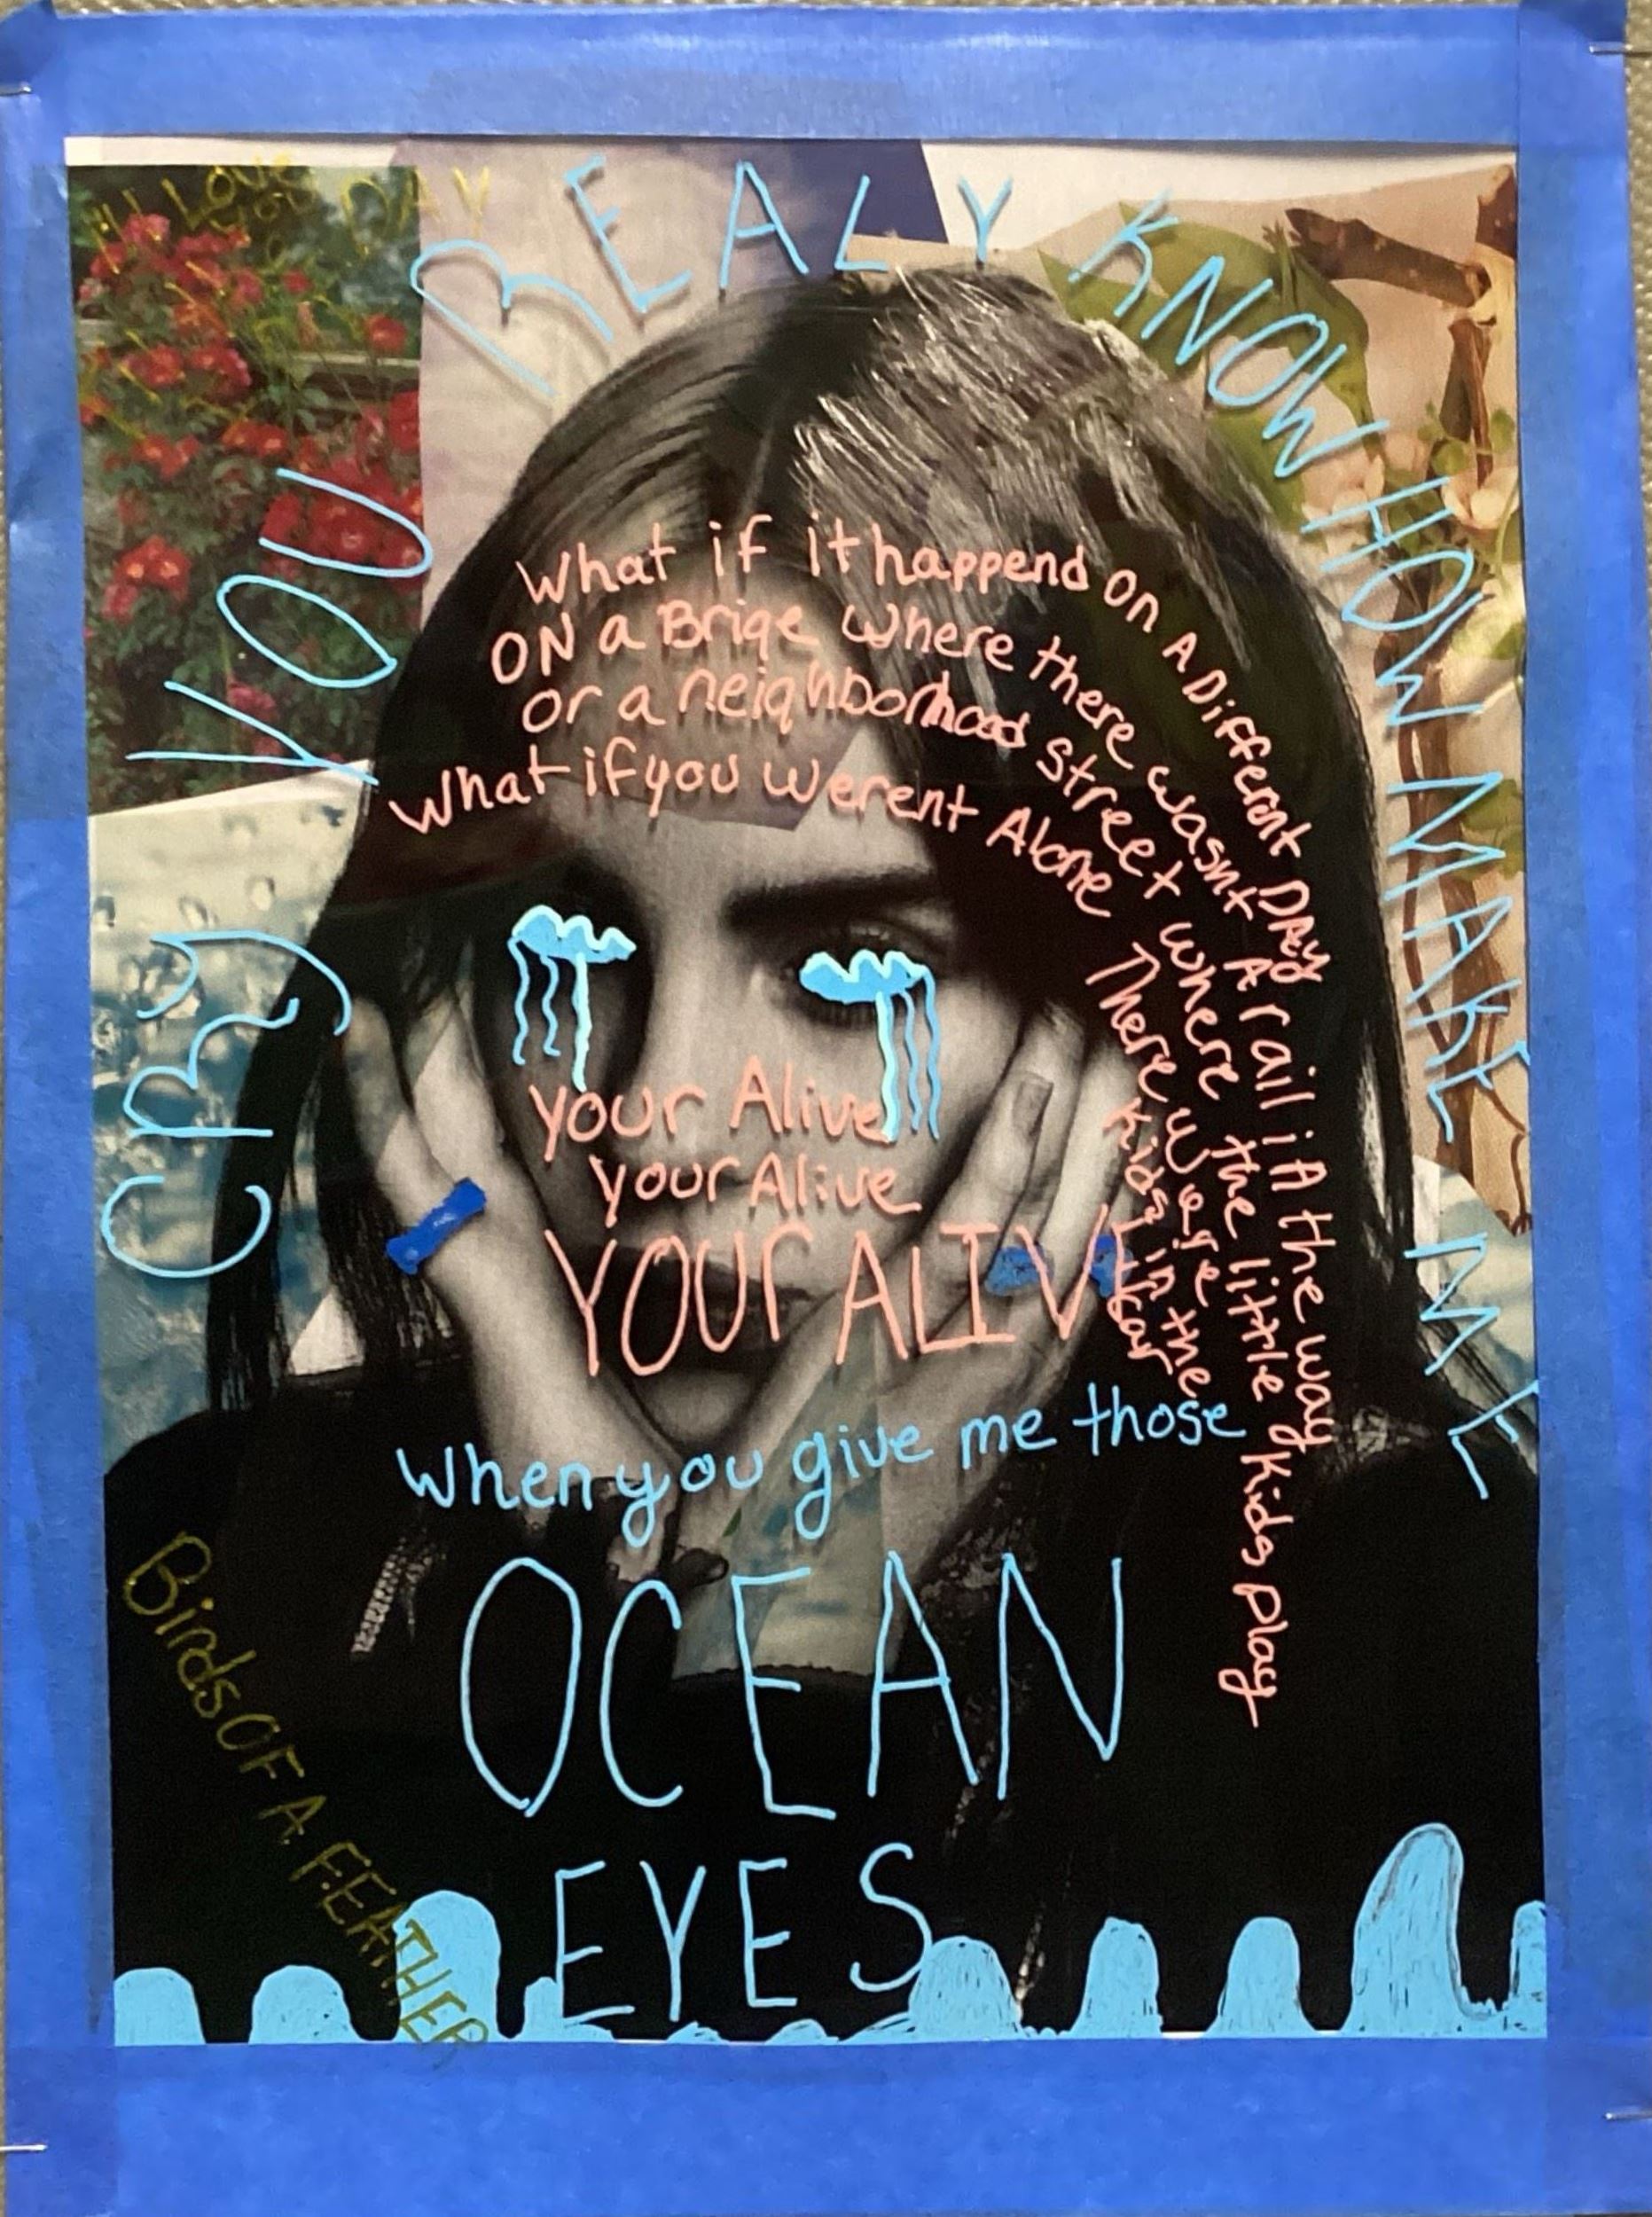 Cry YOU REALY KNOW HOW MAKE ME
What if it happend on A Different DAY
ON a Briqe where there wasnt A rail iA the way
or a neighborhood street where the little kids play
What if you werent Alone There were kids in the car
your Alive
your Alive
YOUr ALIVE
when you give me those
OCEAN
EYES
BirdsOF A FEATHER